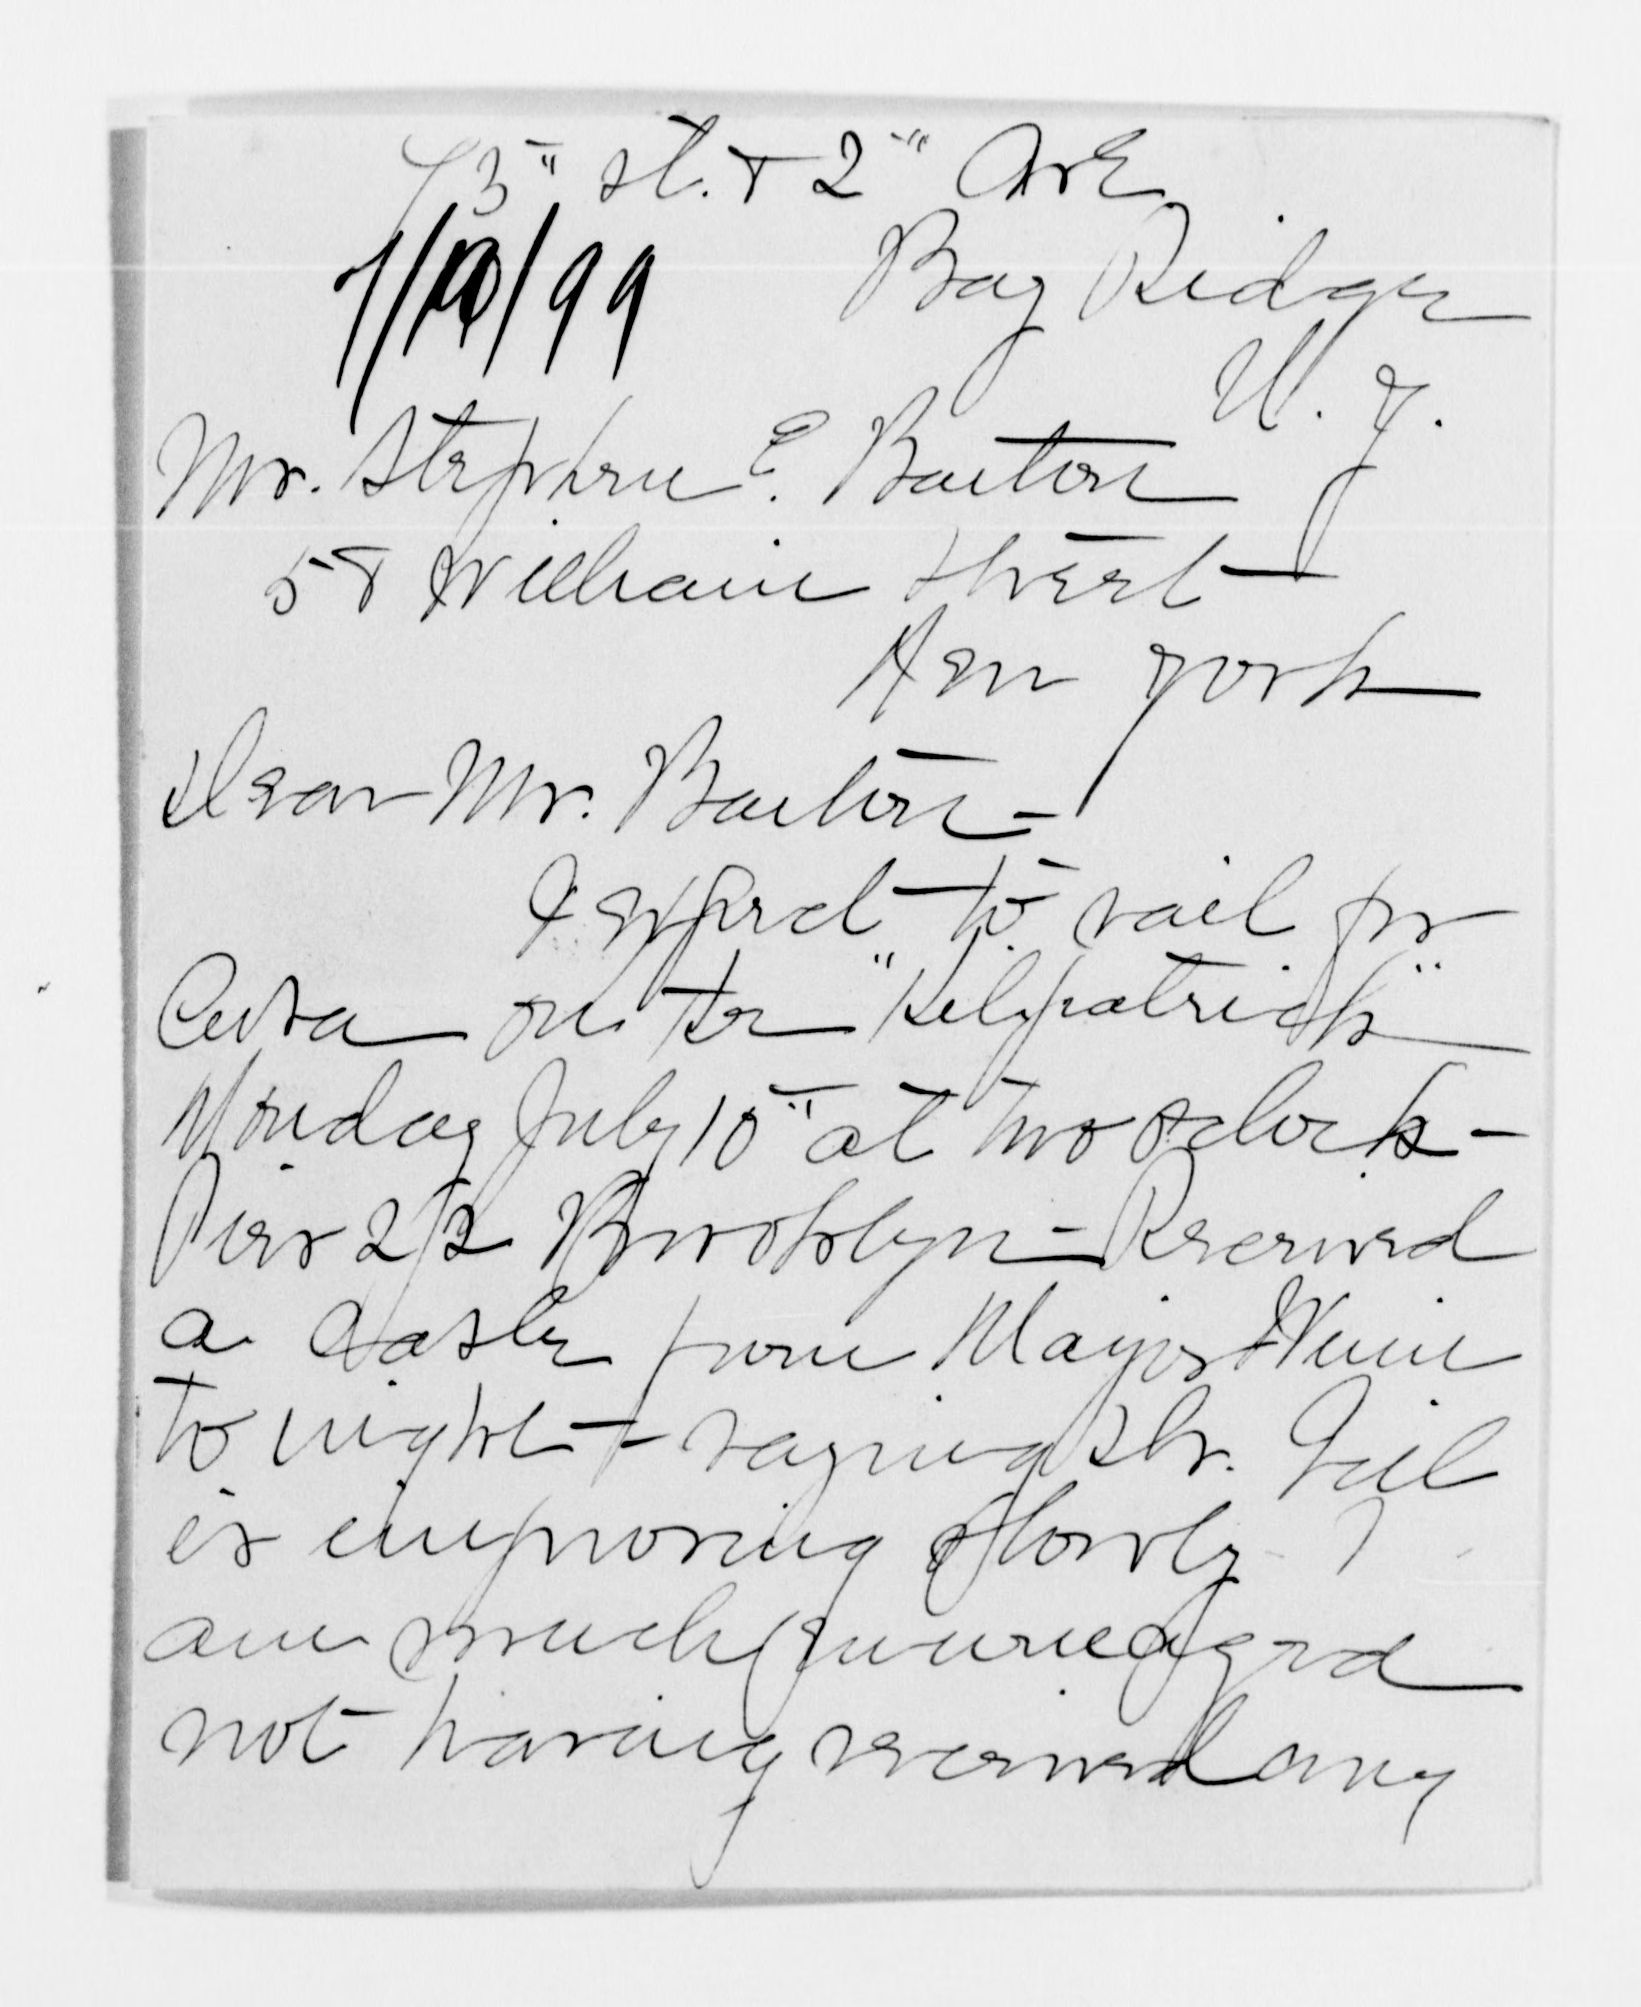 73" St. & 2" Ave
7/10/99 Bay Ridge
N. Y.
Mr. Stephen E. Barton
58 William Street
New York
Dear Mr. Barton -
I expect to sail for
Cuba on the "Kilpatrick"
Monday July 10" at two oclock -
Pier 22 Brooklyn - Received
a cable from Major
to night - saying Dr. Gill
is improving slowly - I
am much encouraged
not having received any